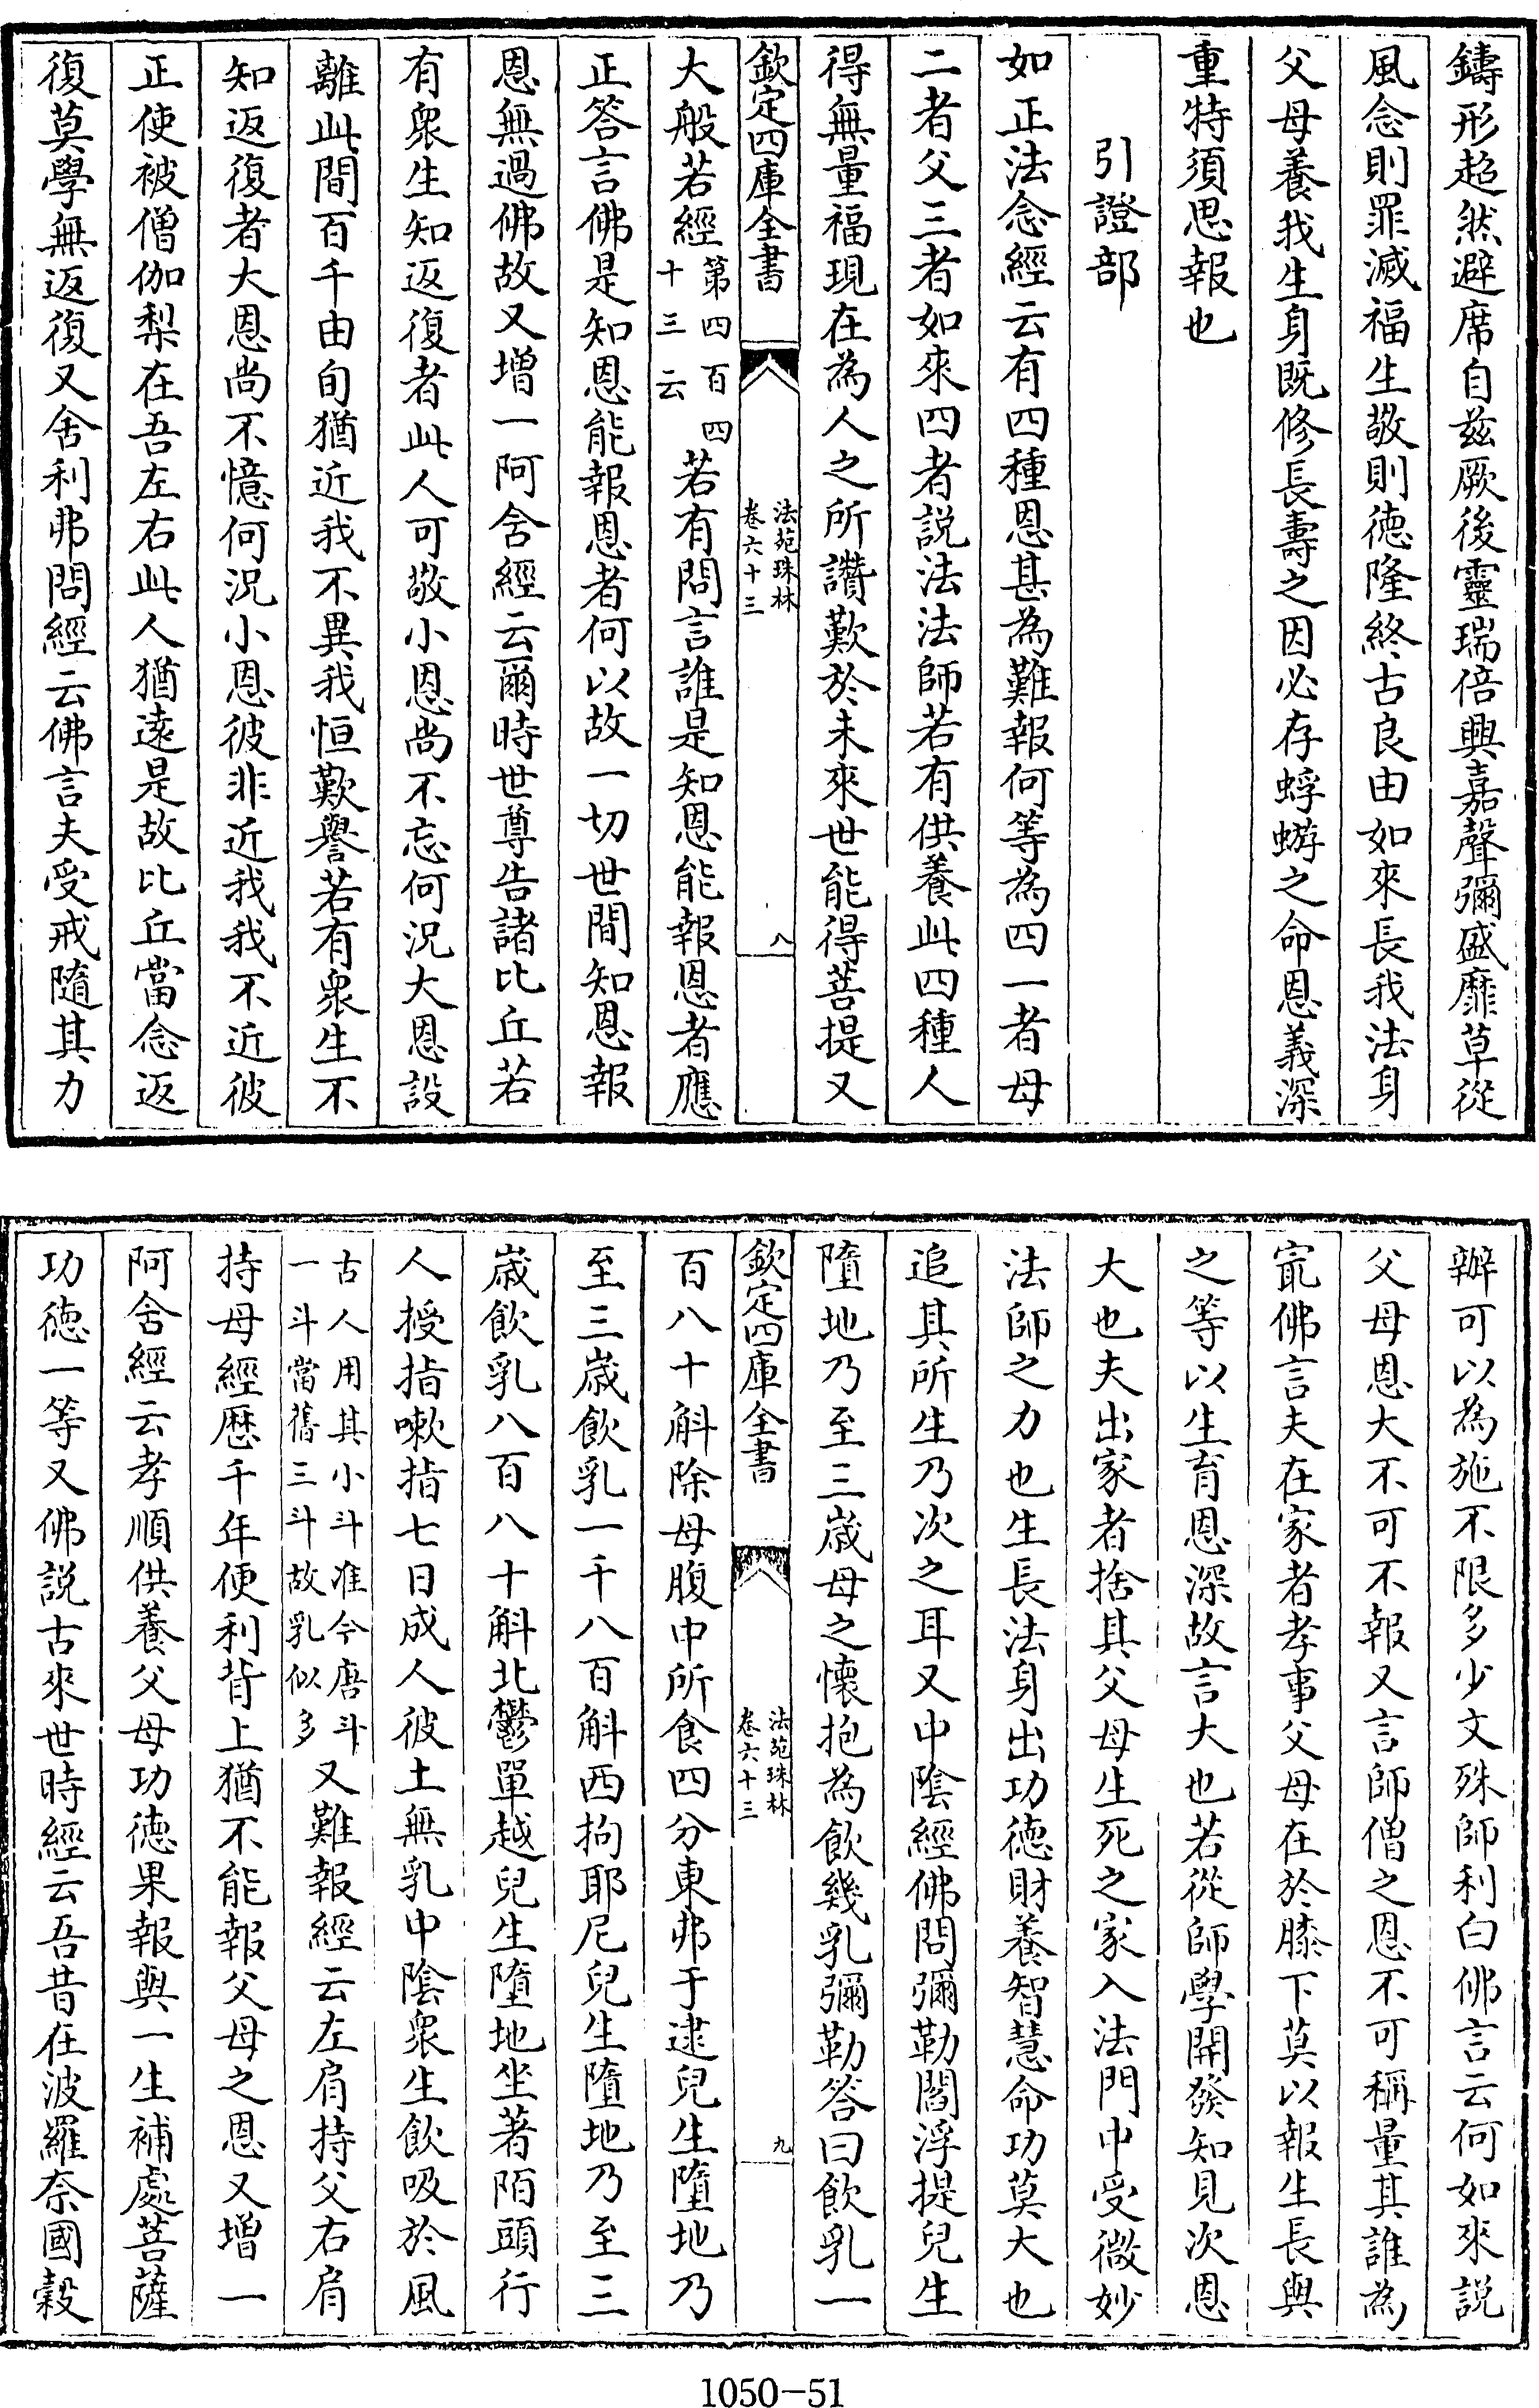 鑄形超然避席自兹厥後靈瑞倍興嘉聲彌盛靡草從
風念則罪滅福生敬則德隆終古良由如來長我法身
父母養我生身既修長壽之因必存蜉蝣之命恩義深
重特須思報也
引證部
如正法念經云有四種恩甚為難報何等為四一者母
二者父三者如來四者説法法師若有供養此四種人
得無量福現在為人之所讚歎於未來世能得菩提又
欽定四庫全書
法苑珠林
卷六十三
八
大般若經第四百四十三云若有問言誰是知恩能報恩者應
正答言佛是知恩能報恩者何以故一切世間知恩報
恩無過佛故又增一阿舍經云爾時世尊告諸比丘若
有衆生知返復者此人可敬小恩尚不忘何況大恩設
離此間百千由旬猶近我不異我恒歎譽若有衆生不
知返復者大恩尚不憶何況小恩彼非近我我不近彼
正使被僧伽梨在吾左右此人猶遠是故比丘當念返
復莫學無返復又舍利弗問經云佛言夫受戒隨其力
辦可以為施不限多少文殊師利白佛言云何如來説
父母恩大不可不報又言師僧之恩不可稱量其誰為
最佛言夫在家者孝事父母在於膝下莫以報生長與
之等以生育恩深故言大也若從師學開發知見次恩
大也夫出家者捨其父母生死之家入法門中受微妙
法師之力也生長法身出功德財養智慧命功莫大也
追其所生乃次之耳又中陰經佛問彌勒閻浮提兒生
墮地乃至三歲母之懷抱為飲幾乳彌勒答曰飲乳一
欽定四庫全書
法苑珠林
卷六十三
九
百八十斛除母腹中所食四分東弗于逮兒生墮地乃
至三歲飲乳一千八百斛西拘耶尼兒生墮地乃至三
歲飲乳八百八十斛北鬱單越兒生墮地坐著陌頭行
人授指嗽指七日成人彼土無乳中陰衆生飲吸於風
古人用其小斗准今唐斗一斗當舊三斗故乳似多又難報經云左肩持父右肩
持母經歷千年便利背上猶不能報父母之恩又增一
阿舍經云孝順供養父母功德果報與一生補處菩薩
功德一等又佛説古來世時經云吾昔在波羅奈國穀
1050-51